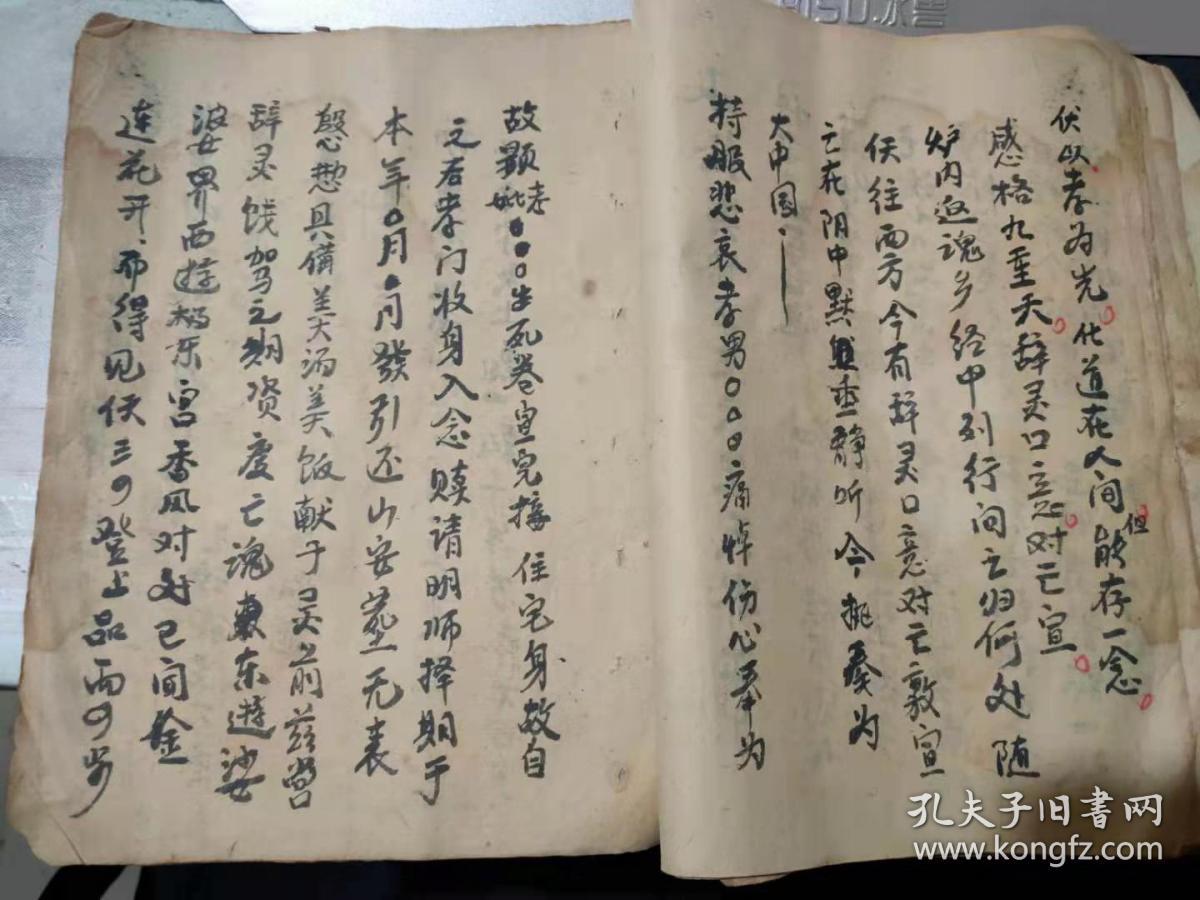 伏以孝为先化道在人间但能存一念
感格九重天辞灵口意对亡宣
炉内返魂乡经中列行间亡归何处随
伏往西方今有辞灵口意对亡敦宣
亡在阴中默然垂静听今据奏为
大中国
持服悲哀孝男〇〇〇痛悼伤心奉为
故顕考妣〇〇〇生死卷宣完接住宅身故自
之后孝门收身入念赎请明师择期于
本年〇月〇月發引还山安葬无表
慇懃具備羙大汤羙饭献于灵前兹當
辞灵饯驾之期资度亡魂东遊娑
婆界西遊极乐宫香风对对已间金
莲花开而得见伏三〇登上品而〇步
孔夫子旧书网
www.kongfz.com